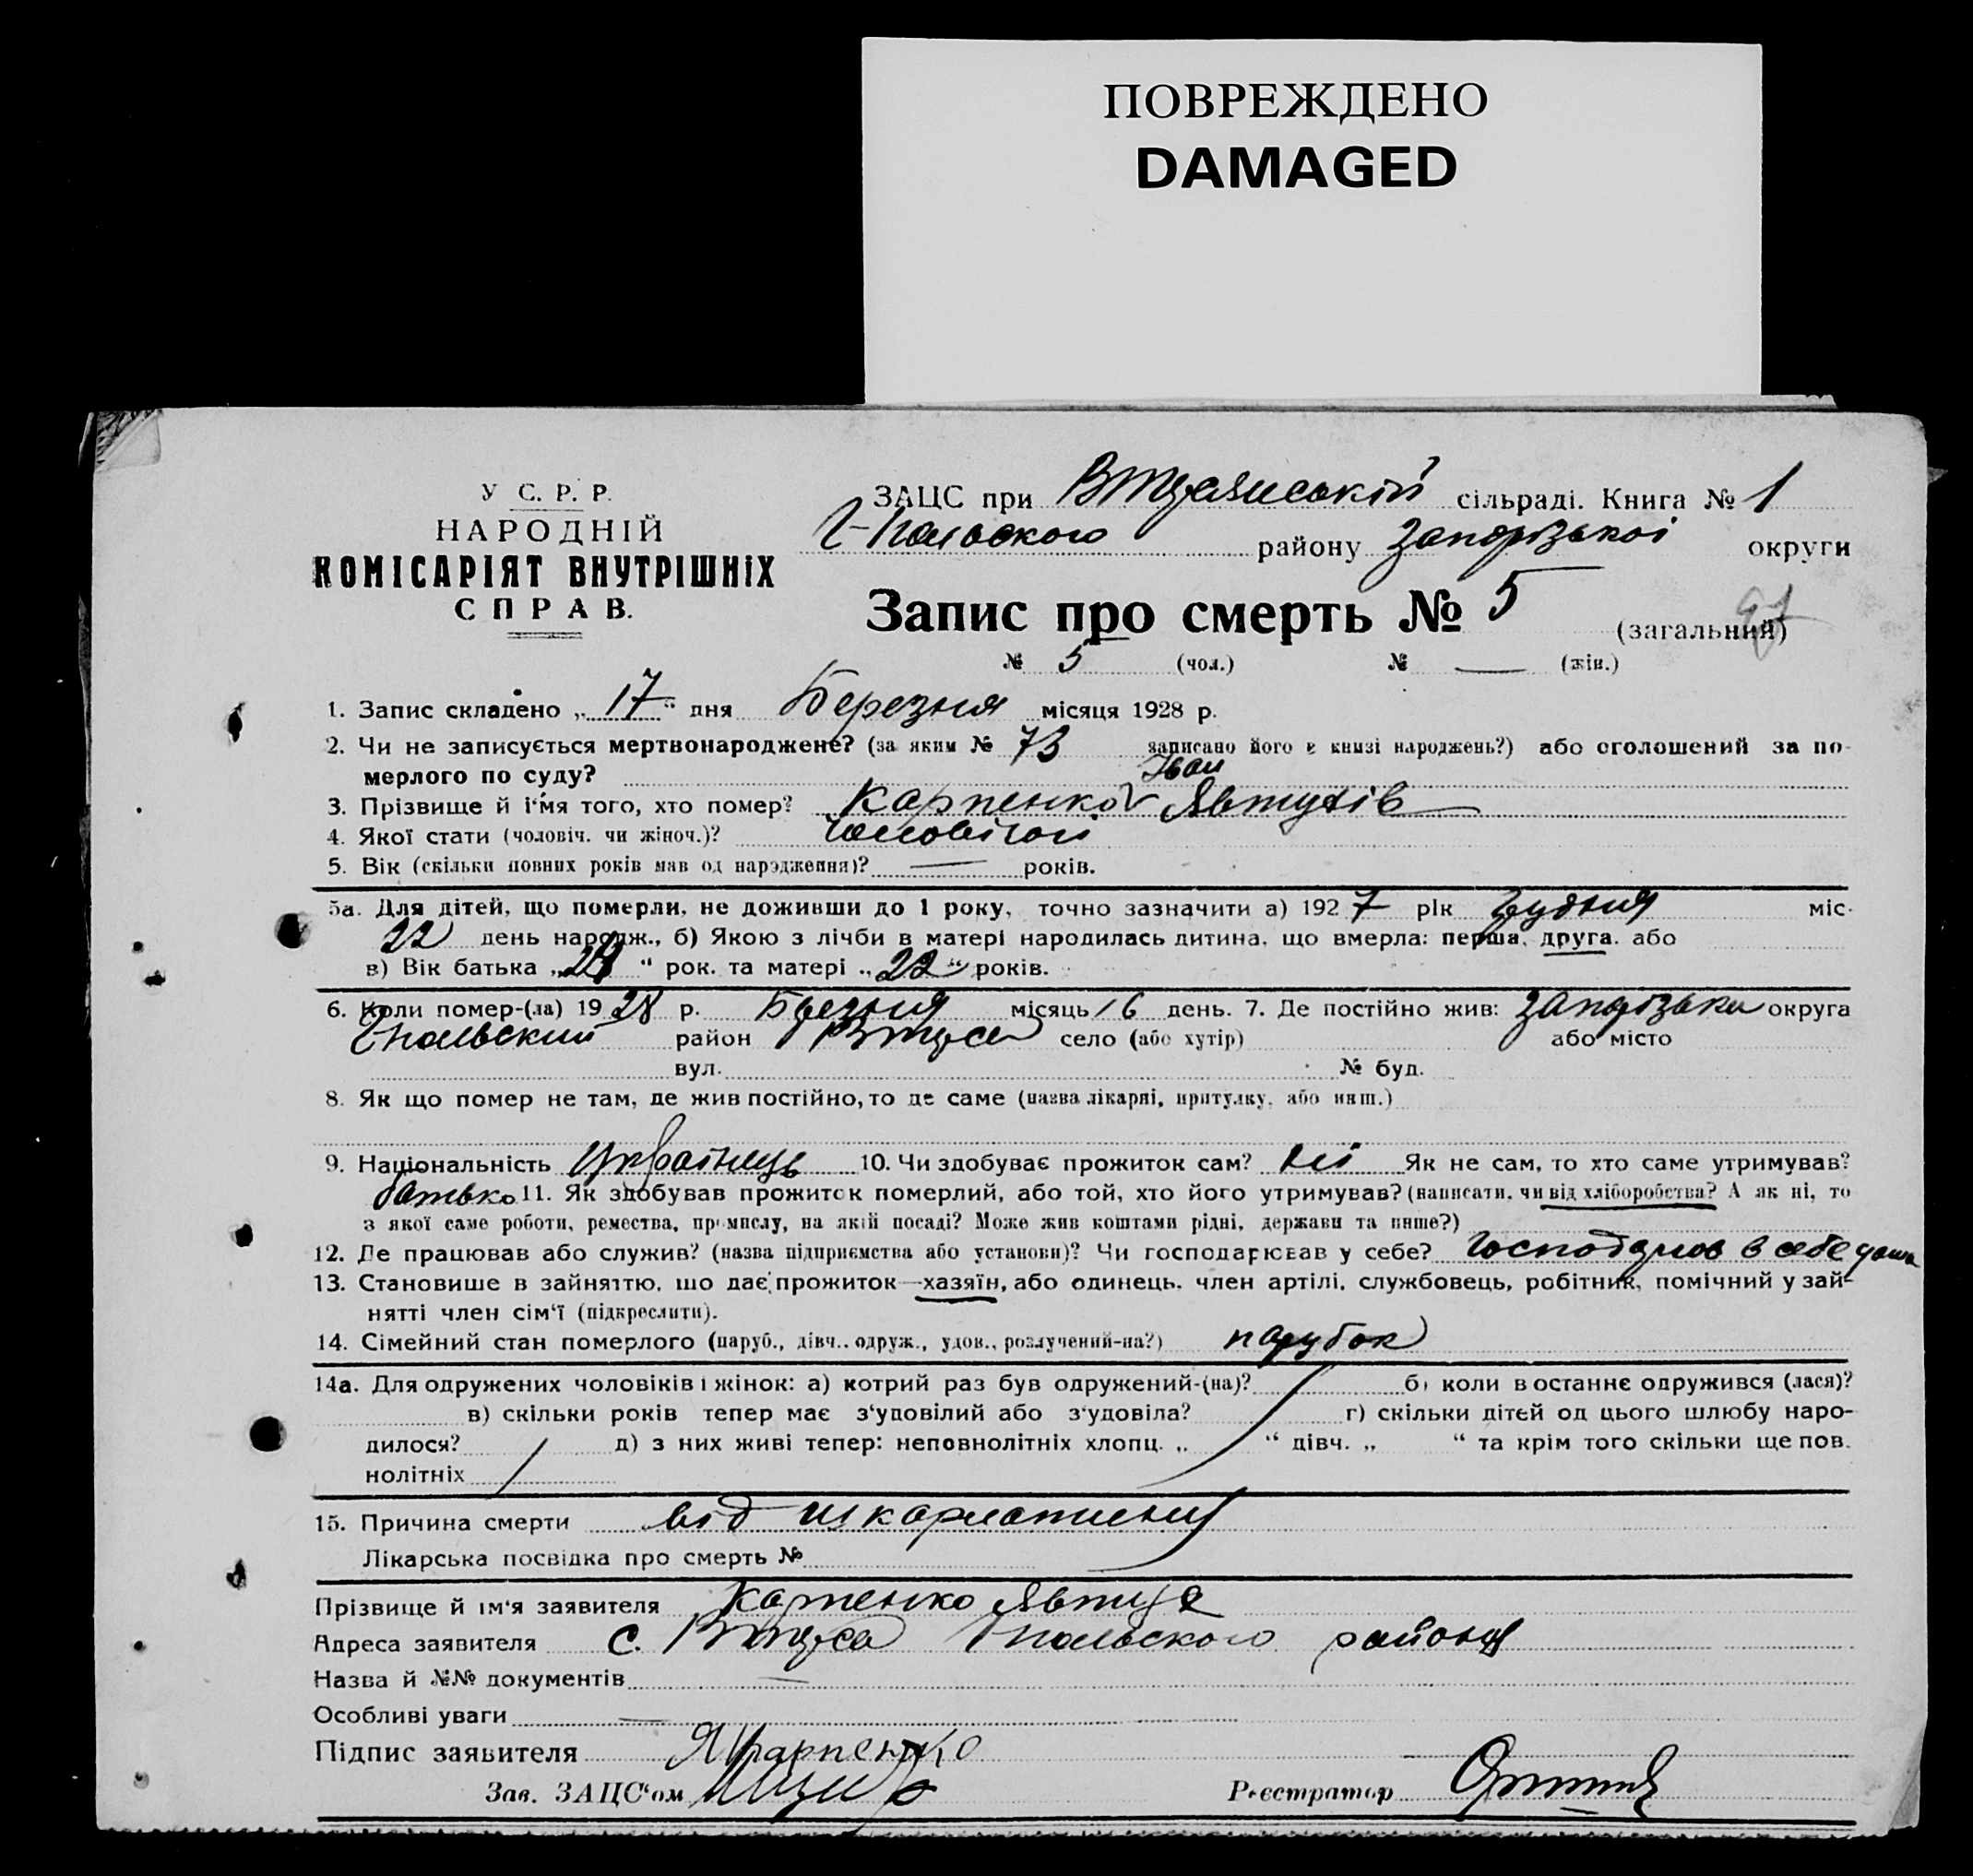 ПОВРЕЖДЕНО
DAMAGED
У С. Р. Р.
НАРОДНІЙ
КОМІСАРІЯТ ВНУТРІШНІХ
СПРАВ.
ЗАЦС при сільраді. Книга № 1
Г-Польского району Запорізької округи
Запис про смерть № 5 (загальний)
№ 5 (чол.) № — (жін.)
1. Запис складено „ 17 “ дня Березня місяця 1928 р.
2. Чи не записується мертвонароджене? (за яким № 73 записано його в книзі народжень?) або оголошений за по-
мерлого по суду?
Іван
3. Прізвище й і'мя того, хто помер? Карпенко Явтухів
4. Якої стати (чоловіч. чи жіноч.)? Чоловічої
5. Вік (скільки повних років мав од народження)? — років.
5а. Для дітей, що померли, не доживши до 1 року, точно зазначити а) 1927 рік Грудня міс.
22 день народж., б) Якою з лічби в матері народилась дитина, що вмерла: перша, друга, або
в) Вік батька „ “ рок. та матері „ 22 “ років.
6. Коли помер-(ла) 1928 р. Березня місяць 16 день. 7. Де постійно жив: Запорізька округа
Гпольский район село (або хутір) або місто
вул. № буд.
8. Як що помер не там, де жив постійно, то де саме (назва лікарні, притулку, або инш.)
9. Національність Українець 10. Чи здобуває прожиток сам? Ні Як не сам, то хто саме утримував?
батько 11. Як здобував прожиток померлий, або той, хто його утримував? (написати, чи від хліборобства? А як ні, то
з якої саме роботи, ремества, промислу, на якій посаді? Може жив коштами рідні, держави та инше?)
12. Де працював або служив? (назва підприємства або установи)? Чи господарював у себе? в себе
13. Становище в зайняттю, що дає прожиток—хазяїн, або одинець, член артілі, службовець, робітник, помічний у зай-
нятті член сім'ї (підкреслити).
14. Сімейний стан померлого (паруб., дівч., одруж., удов., розлучений-на?) парубок
14а. Для одружених чоловіків і жінок: а) котрий раз був одружений-(на)? б) коли в останнє одружився (лася)?
в) скільки років тепер має з'удовілий або з'удовіла? г) скільки дітей од цього шлюбу наро-
дилося? д) з них живі тепер: неповнолітніх хлопц. „ “ дівч. „ “ та крім того скільки ще пов.
нолітніх
15. Причина смерти від шкарлатини
Лікарська посвідка про смерть №
Прізвище й ім'я заявителя Карпенко Явтух
Адреса заявителя с. Гпольского району
Назва й №№ документів —
Особливі уваги —
Підпис заявителя Я Карпенко
Зав. ЗАЦС'ом Реєстратор